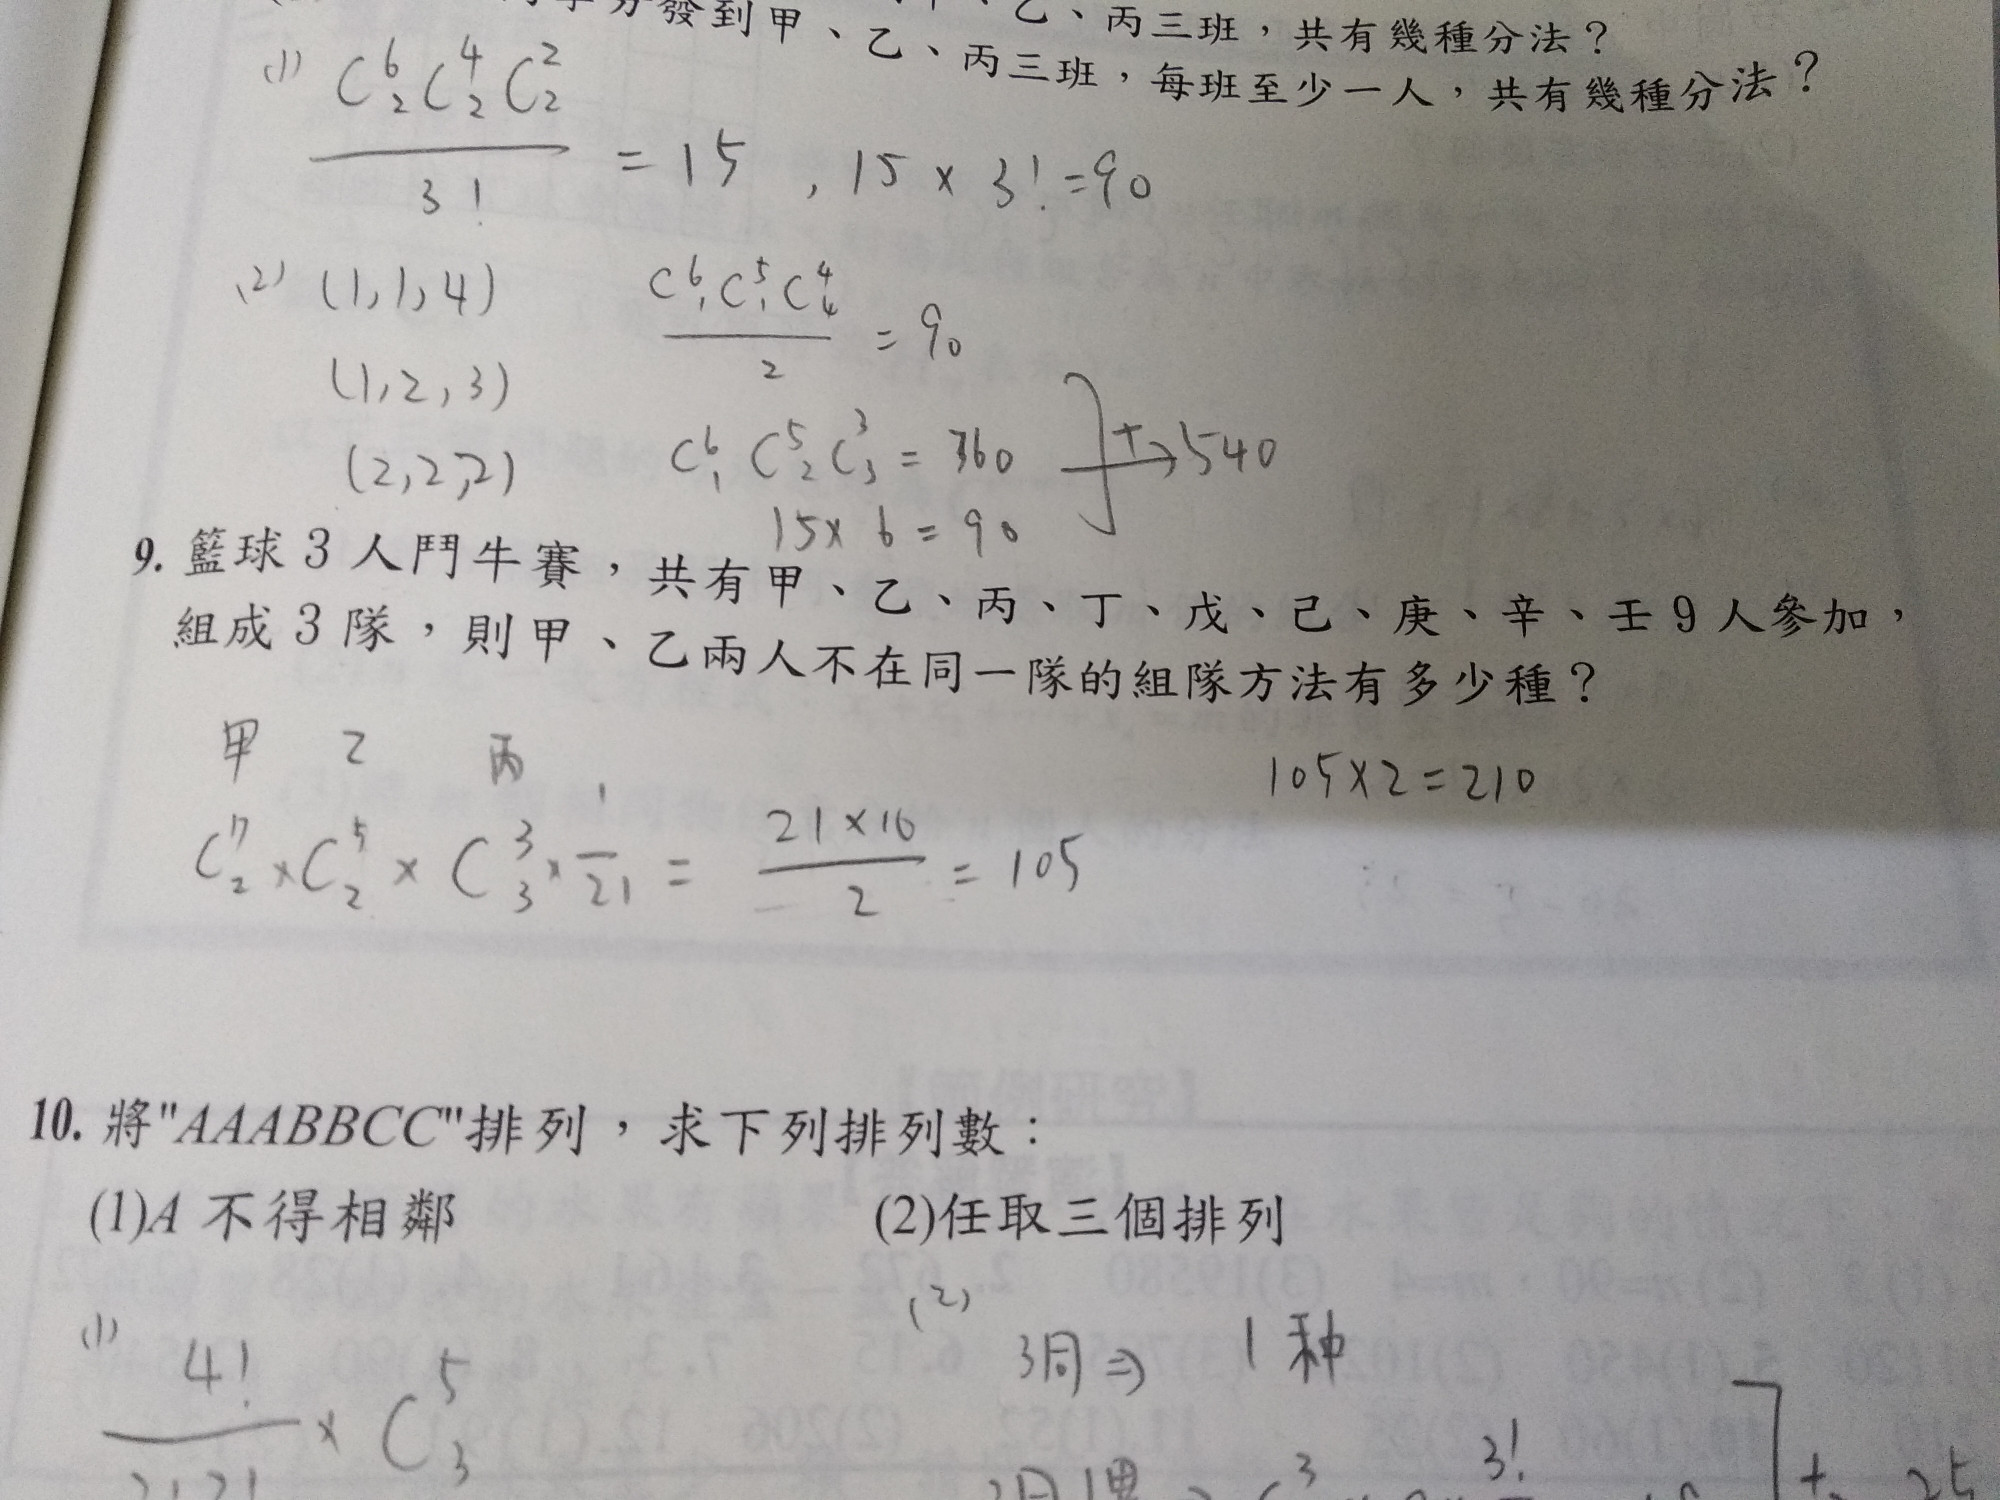 分發到甲、乙、丙三班，共有幾種分法？
甲、乙、丙三班，每班至少一人，共有幾種分法？
(1) C⁶₂C⁴₂C²₂ / 3! = 15 , 15 × 3! = 90
(2) (1,1,4) C⁶₁C⁵₁C⁴₄ / 2 = 90
(1,2,3) C⁶₁C⁵₂C³₃ = 360 + → 540
(2,2,2) 15 × 6 = 90
9. 籃球 3 人鬥牛賽，共有甲、乙、丙、丁、戊、己、庚、辛、壬 9 人參加，
組成 3 隊，則甲、乙兩人不在同一隊的組隊方法有多少種？
甲 乙 丙
105×2=210
C⁷₂ × C⁵₂ × C³₃ × 1/2! = 21×10 / 2 = 105
10. 將"AAABBCC"排列，求下列排列數：
(1)A 不得相鄰 (2)任取三個排列
(1) 4! / 2!2! × C⁵₃
(2) 3同 ⇒ 1种
3!
+ 25